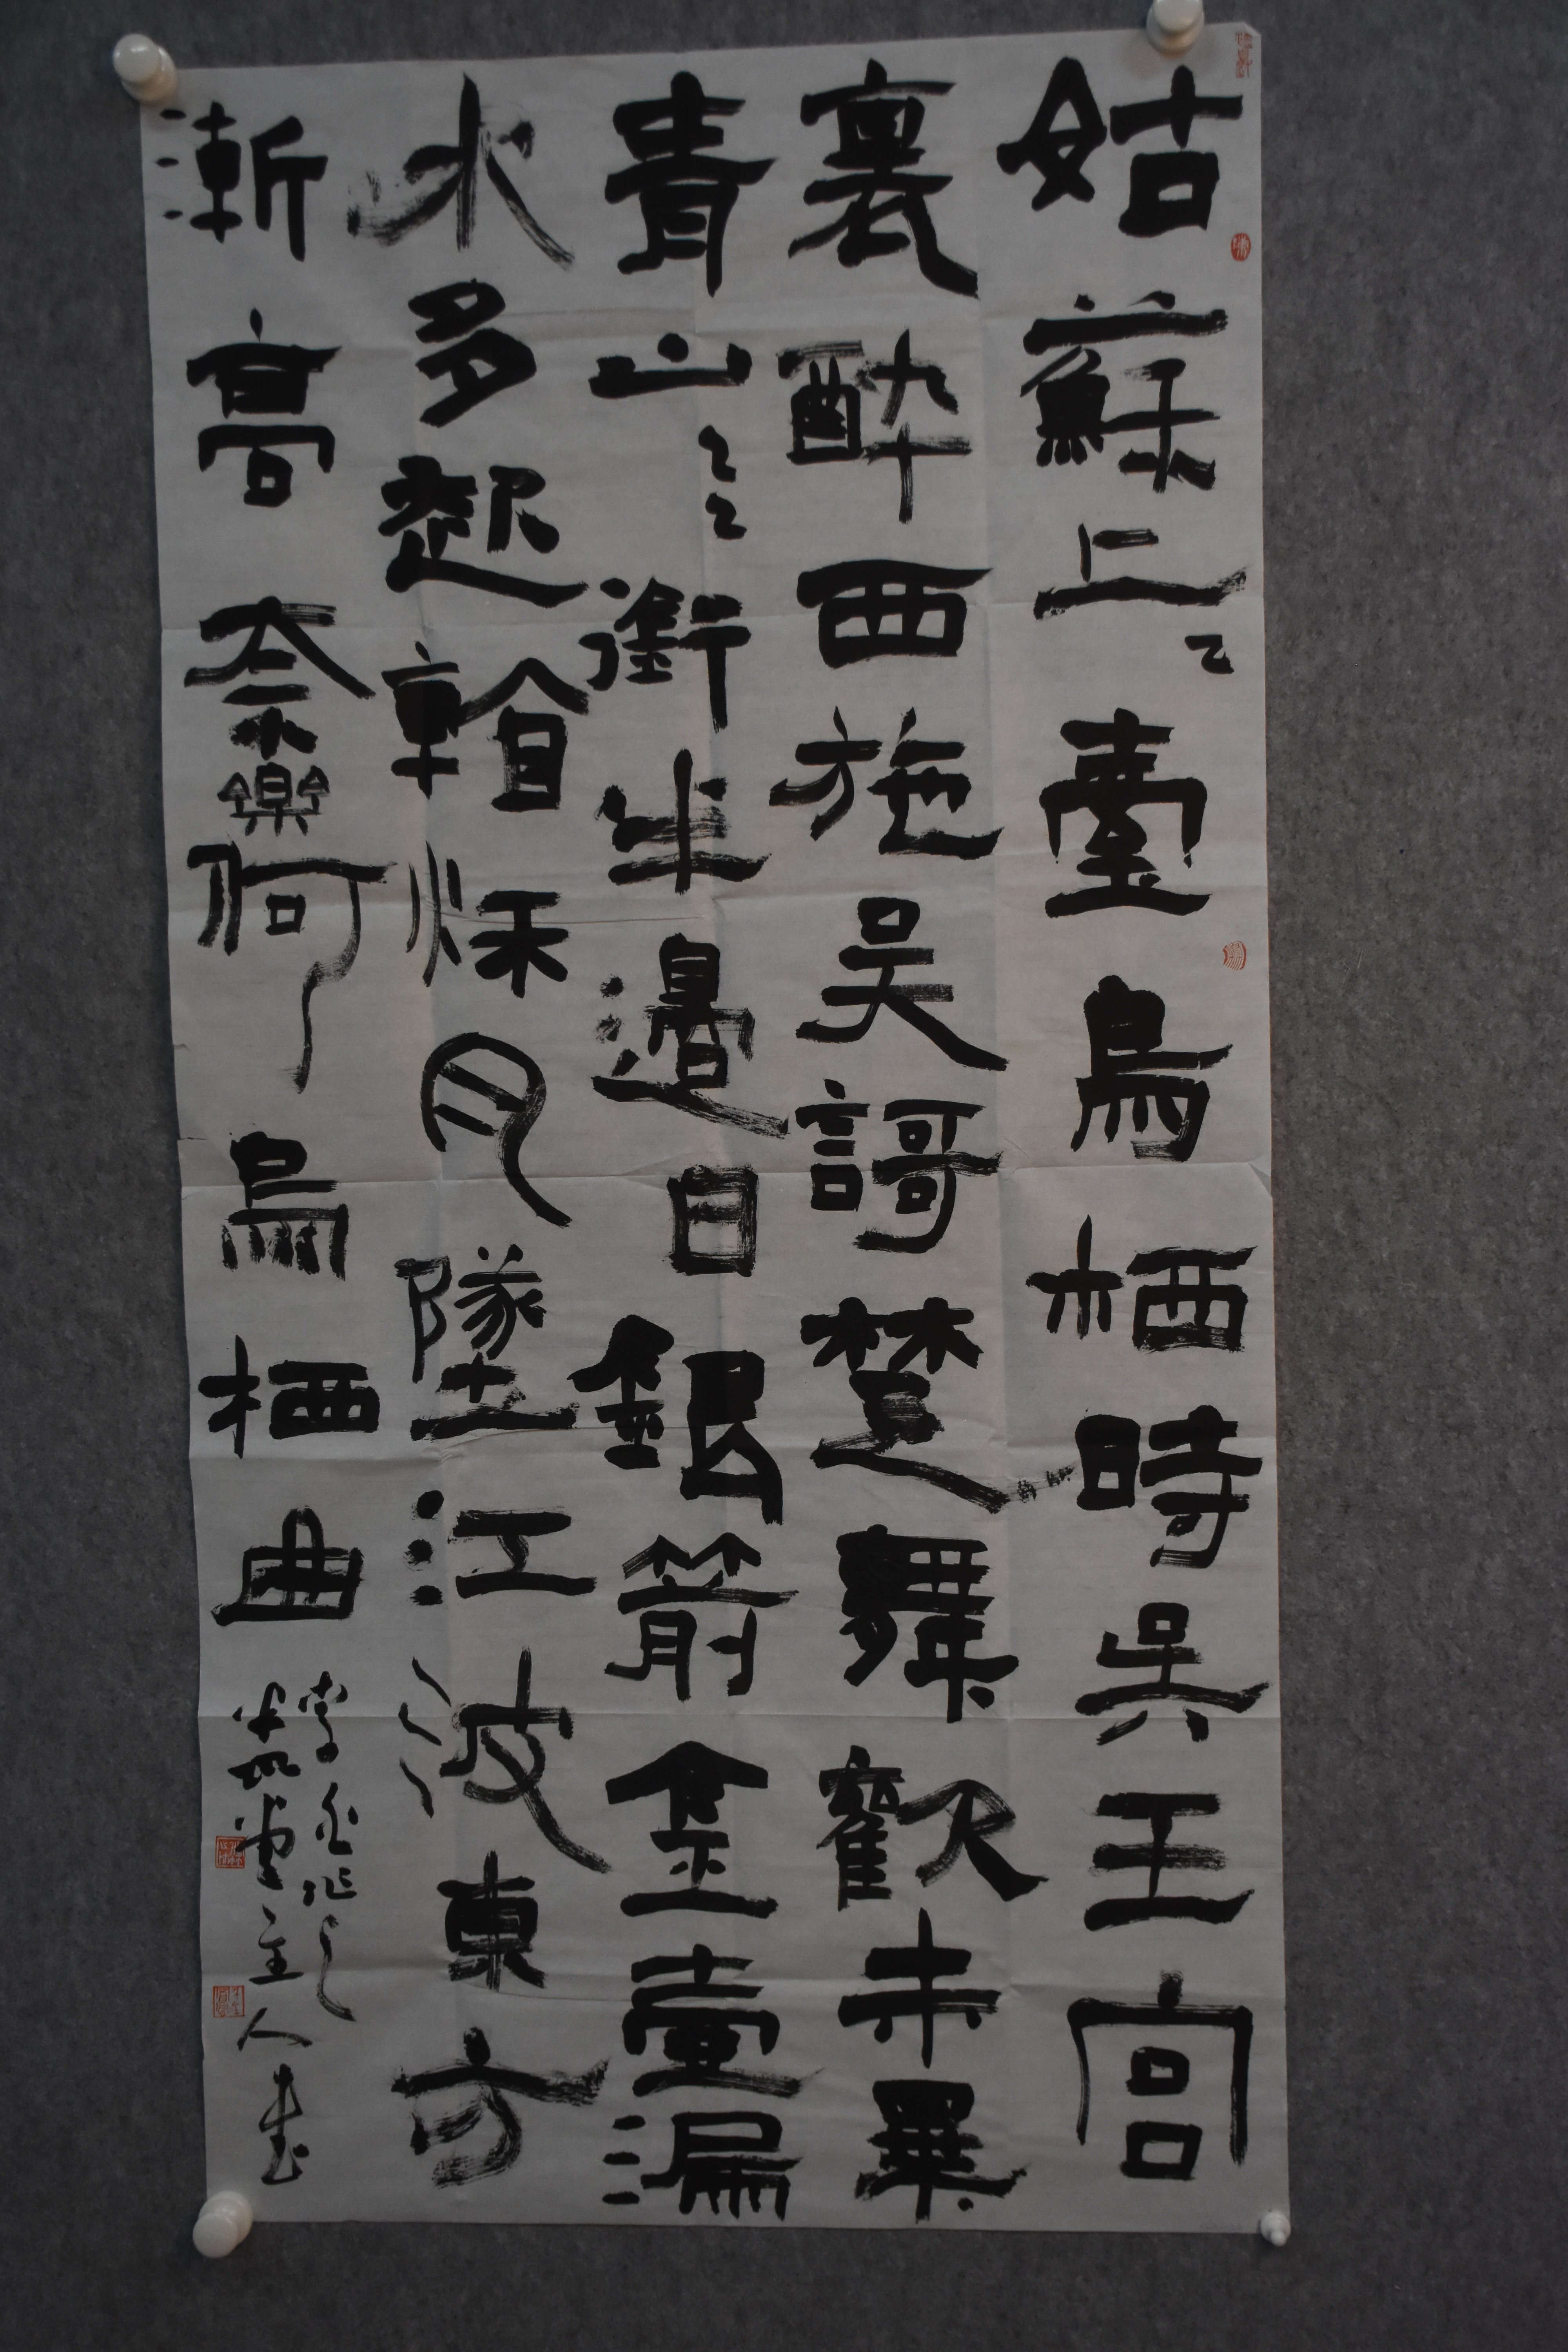 姑蘇上臺烏栖時吳王宮
裏醉西施吳謌楚舞歡未畢
青山銜半邊日銀箭金壺漏
水多起看秋月墜江波東方
漸高奈樂何烏栖曲
李白作
堂主人書